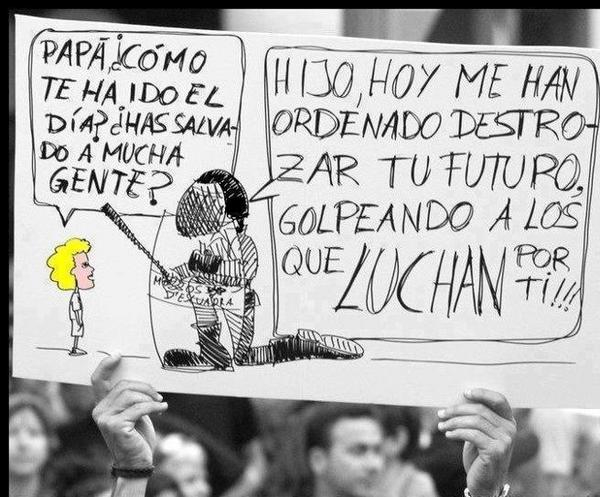 PAPÁ,¿CÓMO
TE HA IDO EL
DÍA? ¿HAS SALVA-
DO A MUCHA
GENTE?
HIJO, HOY ME HAN
ORDENADO DESTRO-
ZAR TU FUTURO,
GOLPEANDO A LOS
QUE LUCHAN POR
TI!!!